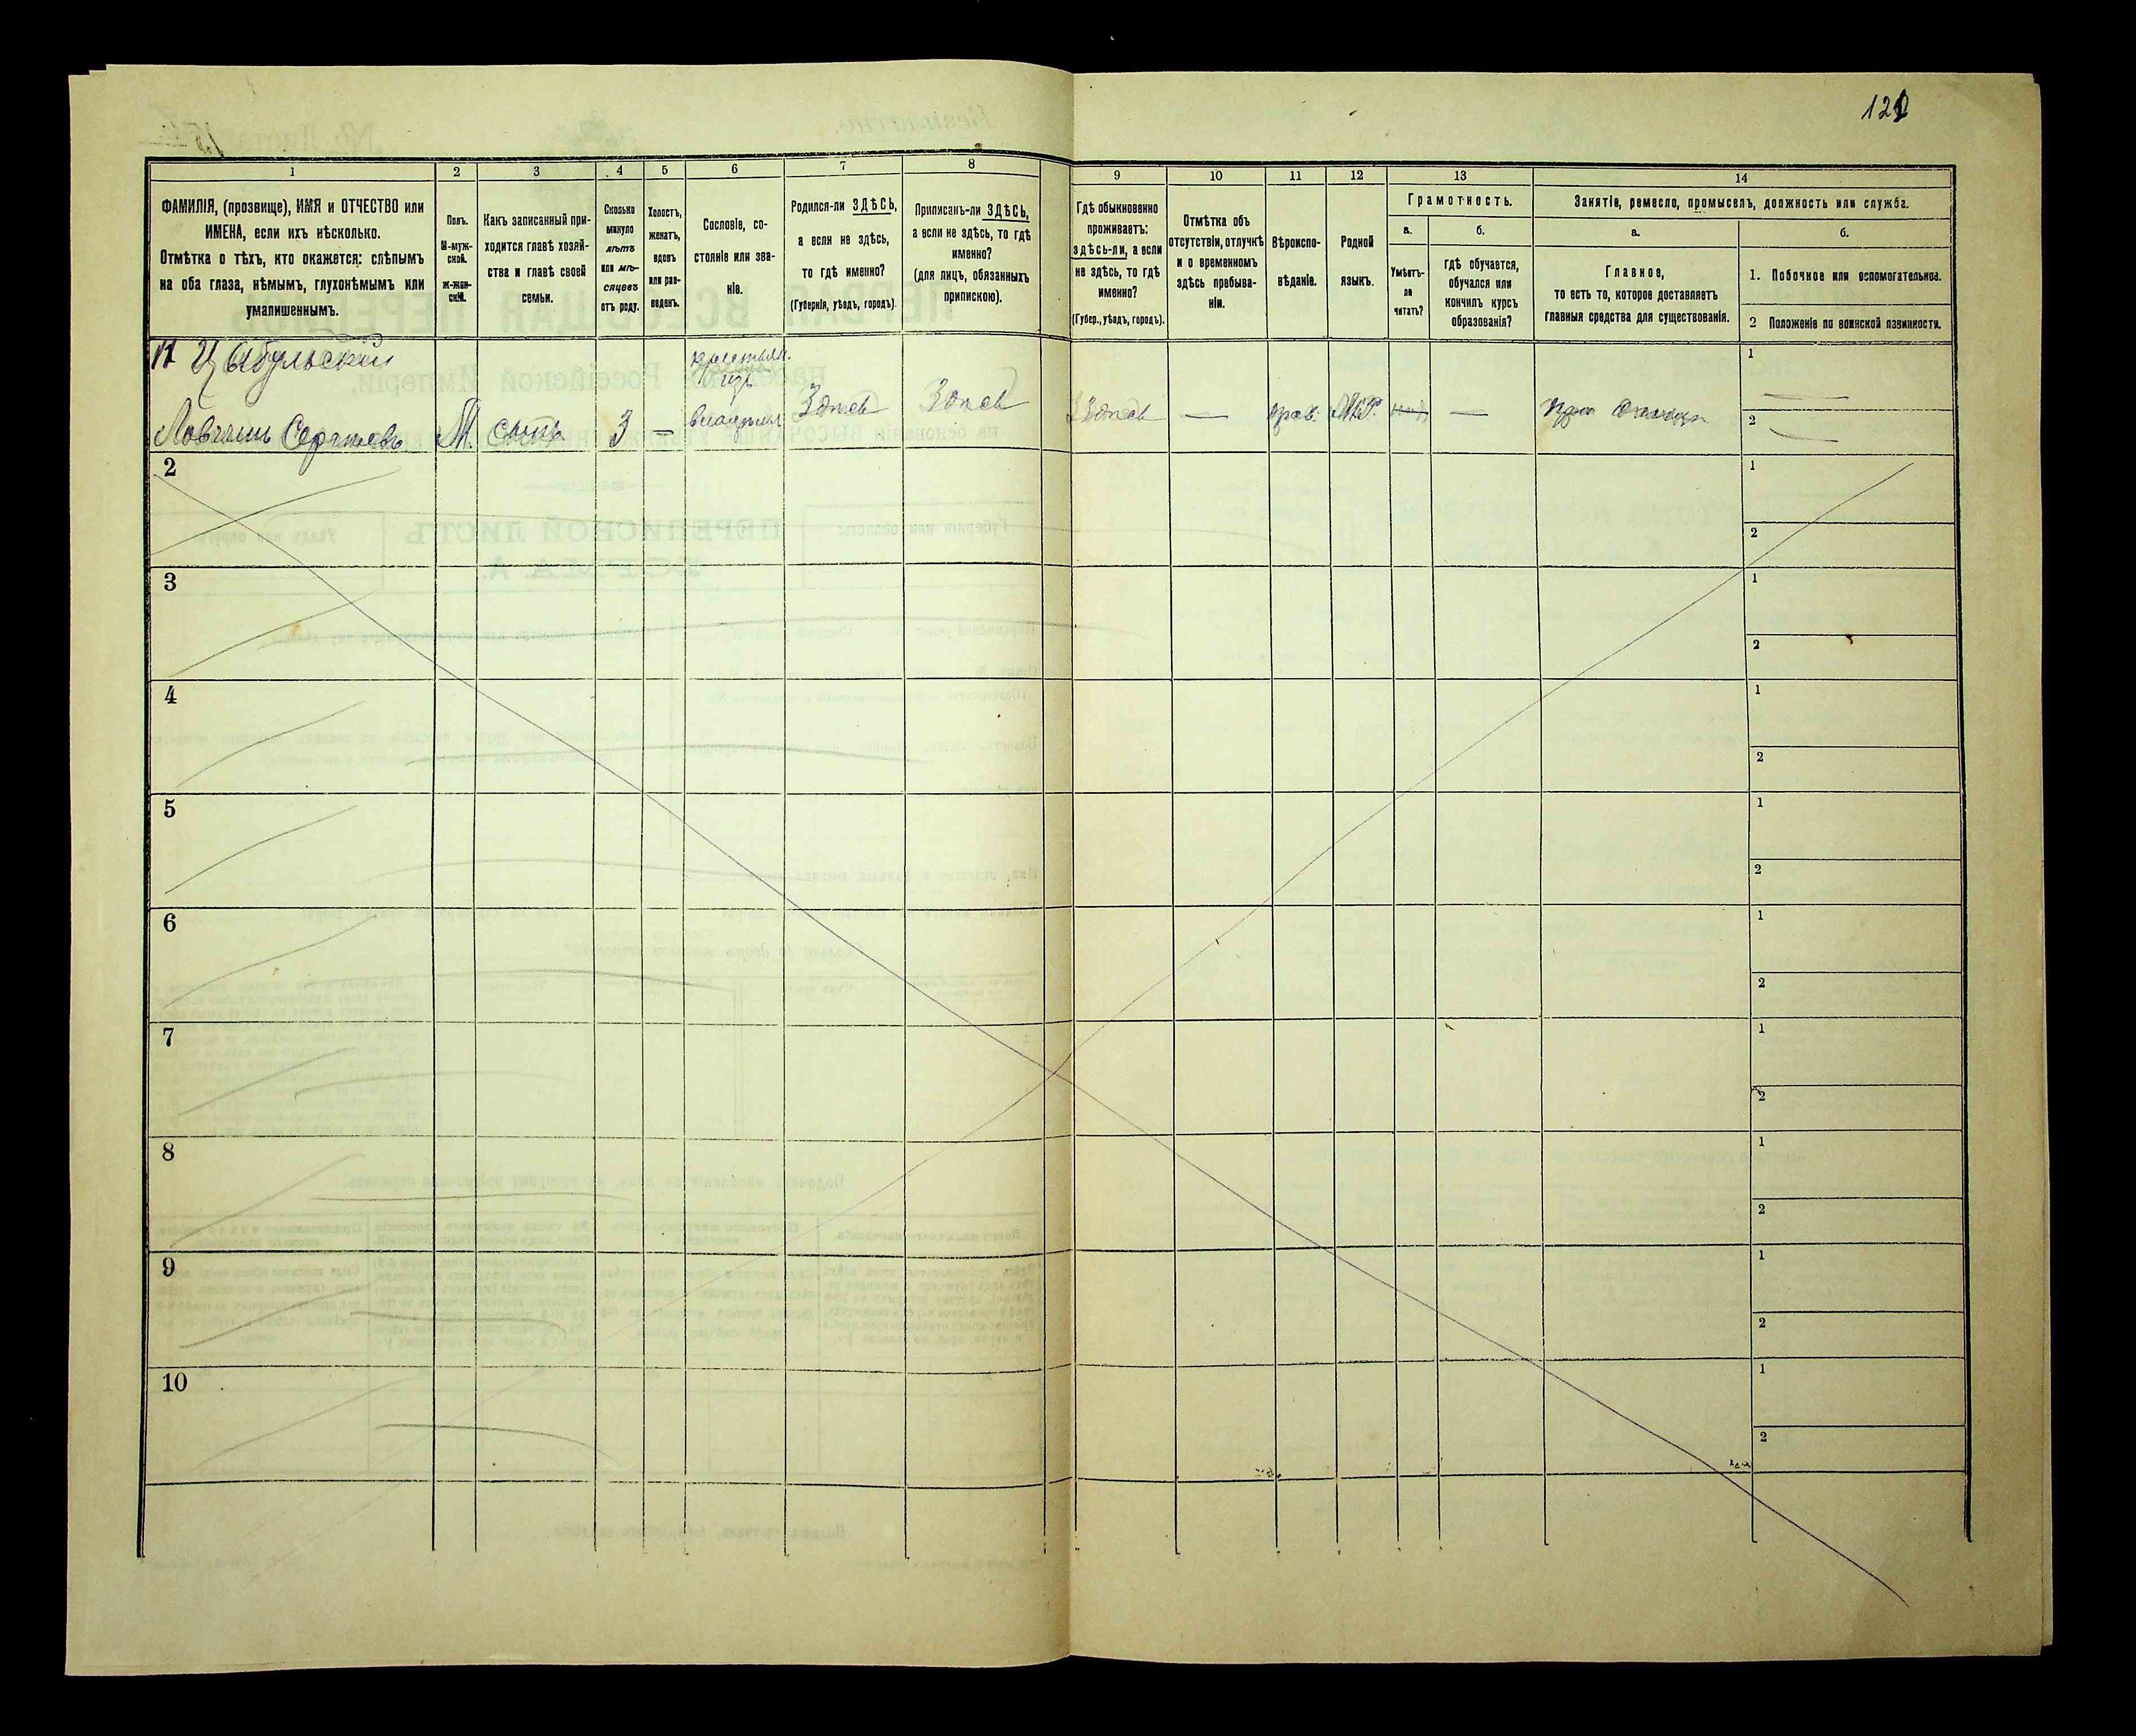 121
1
2
3
4
5
6
7
8
9
10
11
12
13
14
ФАМИЛІЯ, (прозвище), ИМЯ и ОТЧЕСТВО или
ИМЕНА, если ихъ нѣсколько.
Отмѣтка о тѣхъ, кто окажется: слѣпымъ
на оба глаза, нѣмымъ, глухонѣмымъ или
умалишеннымъ.
Полъ.
М-муж-
ской.
Ж-жен-
скій.
Какъ записанный при-
ходится главѣ хозяй-
ства и главѣ своей
семьи.
Сколько
минуло
лѣтъ
или мѣ-
сяцевъ
отъ роду.
Холостъ,
женатъ,
вдовъ
или раз-
веденъ.
Сословіе, со-
стояніе или зва-
ніе.
Родился-ли ЗДѢСЬ,
а если не здѣсь,
то гдѣ именно?
(Губернія, уѣздъ, городъ).
Приписанъ-ли ЗДѢСЬ,
а если не здѣсь, то гдѣ
именно?
(для лицъ, обязанныхъ
припискою).
Гдѣ обыкновенно
проживаетъ:
здѣсь-ли, а если
не здѣсь, то гдѣ
именно?
(Губер., уѣздъ, городъ).
Отмѣтка объ
отсутствіи, отлучкѣ
и о временномъ
здѣсь пребыва-
ніи.
Вѣроиспо-
вѣданіе.
Родной
языкъ.
Грамотность.
а.
Умѣетъ-
ли
читать?
б.
гдѣ обучается,
обучался или
кончилъ курсъ
образованія?
Занятіе, ремесло, промыселъ, должность или служба.
а.
Главное,
то есть то, которое доставляетъ
главныя средства для существованія.
б.
1. Побочное или вспомогательное.
2 Положеніе по воинской повинности.
Цыбульскій
крестьян.
изъ
М. сынъ 3 — владѣльч. Здѣсь Здѣсь Здѣсь — прав. М.Р. — при отцѣ
1
2
2
1
2
3
1
2
4
1
2
5
1
2
6
1
2
7
1
2
8
1
2
9
1
2
10
1
2